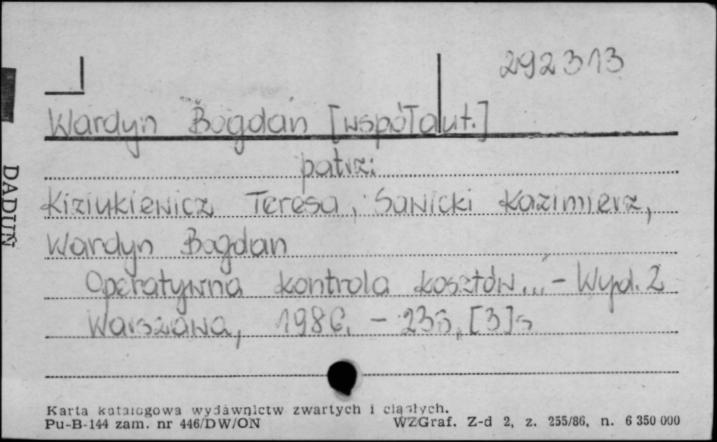 292313
Wardyn Bogdan [współaut.]
patrz:
Kiziukiewicz Teresa, Sawicki Kazimierz,
Wardyn Bogdan
Operatywna kontrola kosztów... - Wyd. 2
Warszawa, 1986. - 235, [3]s
DADUŃ
Karta katalogowa wydawnictw zwartych i ciągłych.
Pu-B-144 zam. nr 446/DW/ON WZGraf. Z-d 2, z. 255/86, n. 6 350 000